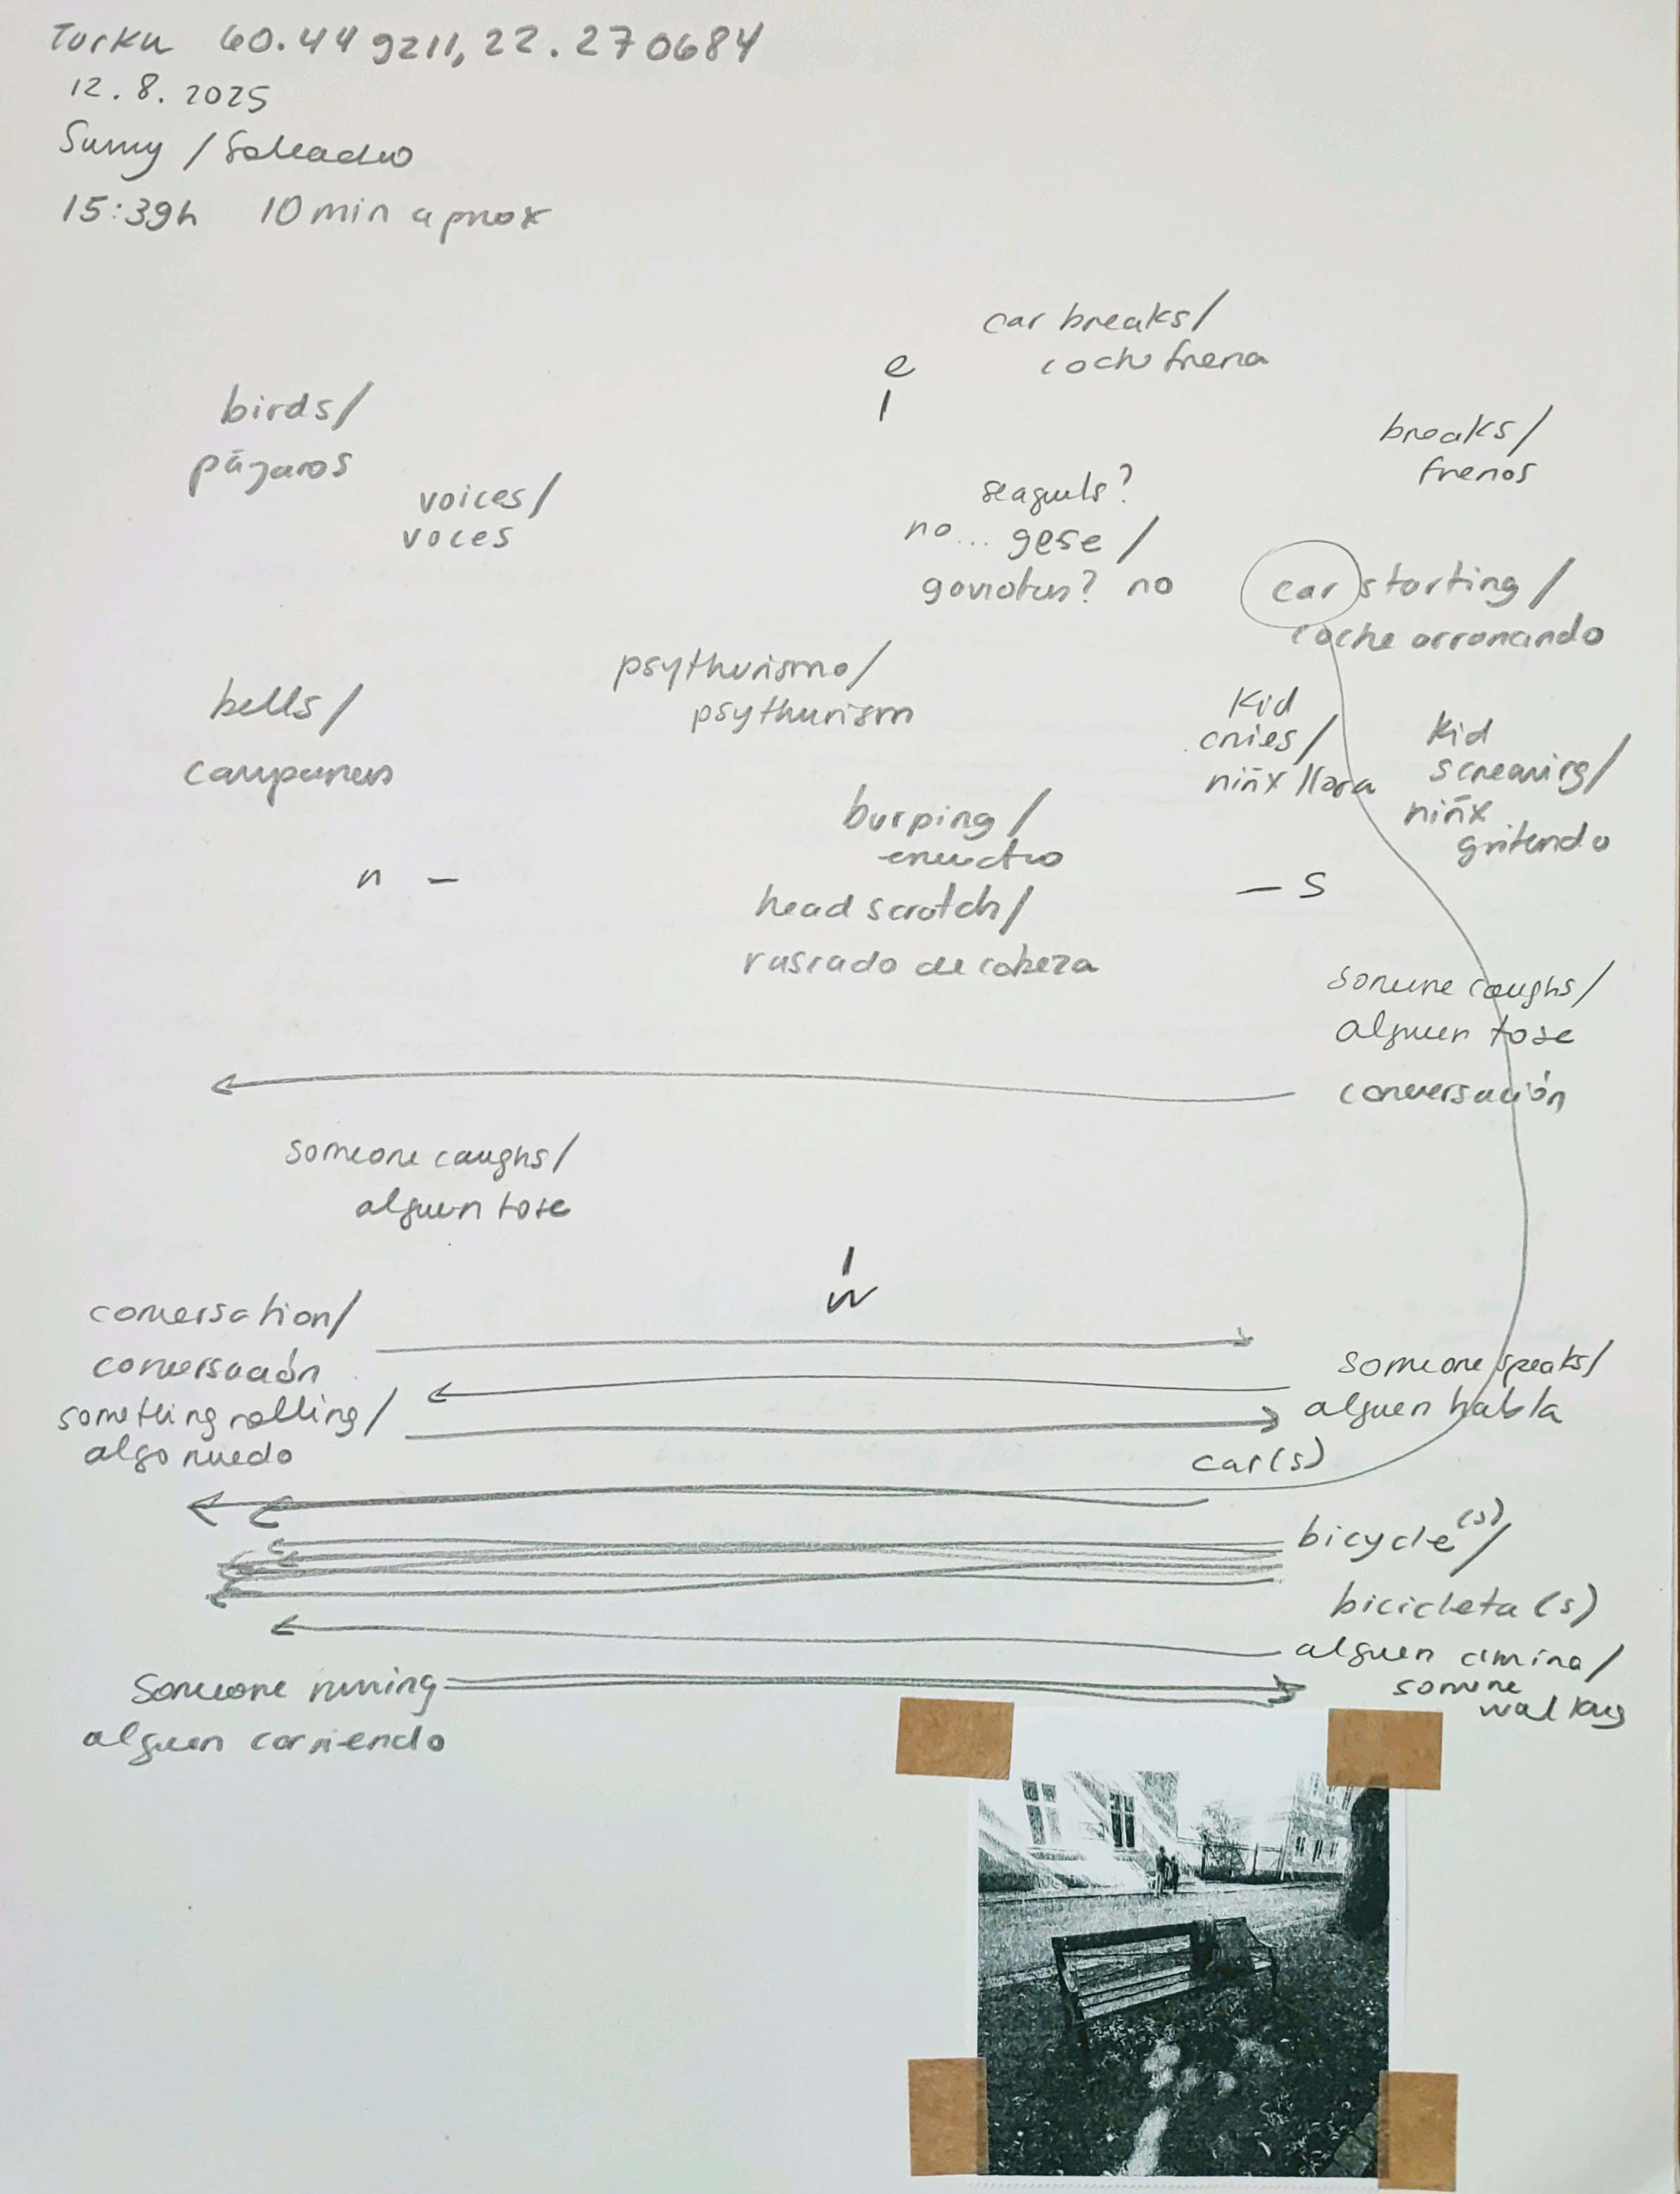 Turku 60.449211, 22.270684
12.8.2025
Sunny / Soleado
15:39h 10 min aprox
car breaks/
coche frena
e
birds/
pájaros
breaks/
frenos
voices/
voces
seagulls?
no... gese /
gaviotas? no
car starting /
coche arrancando
psythurismo/
psythurism
bells/
campanas
Kid
cries/
niñx llora
Kid
screaming/
niñx
gritando
burping /
eructo
n –
– s
head scratch/
rascado de cabeza
someone caughs/
alguien tose
conversación
someone caughs/
alguien tose
w
conversation/
conversación
someone speaks/
alguien habla
something rolling/
algo ruedo
car(s)
bicycle(s)/
bicicleta(s)
alguien camina/
someone
walking
Someone running
alguien corriendo